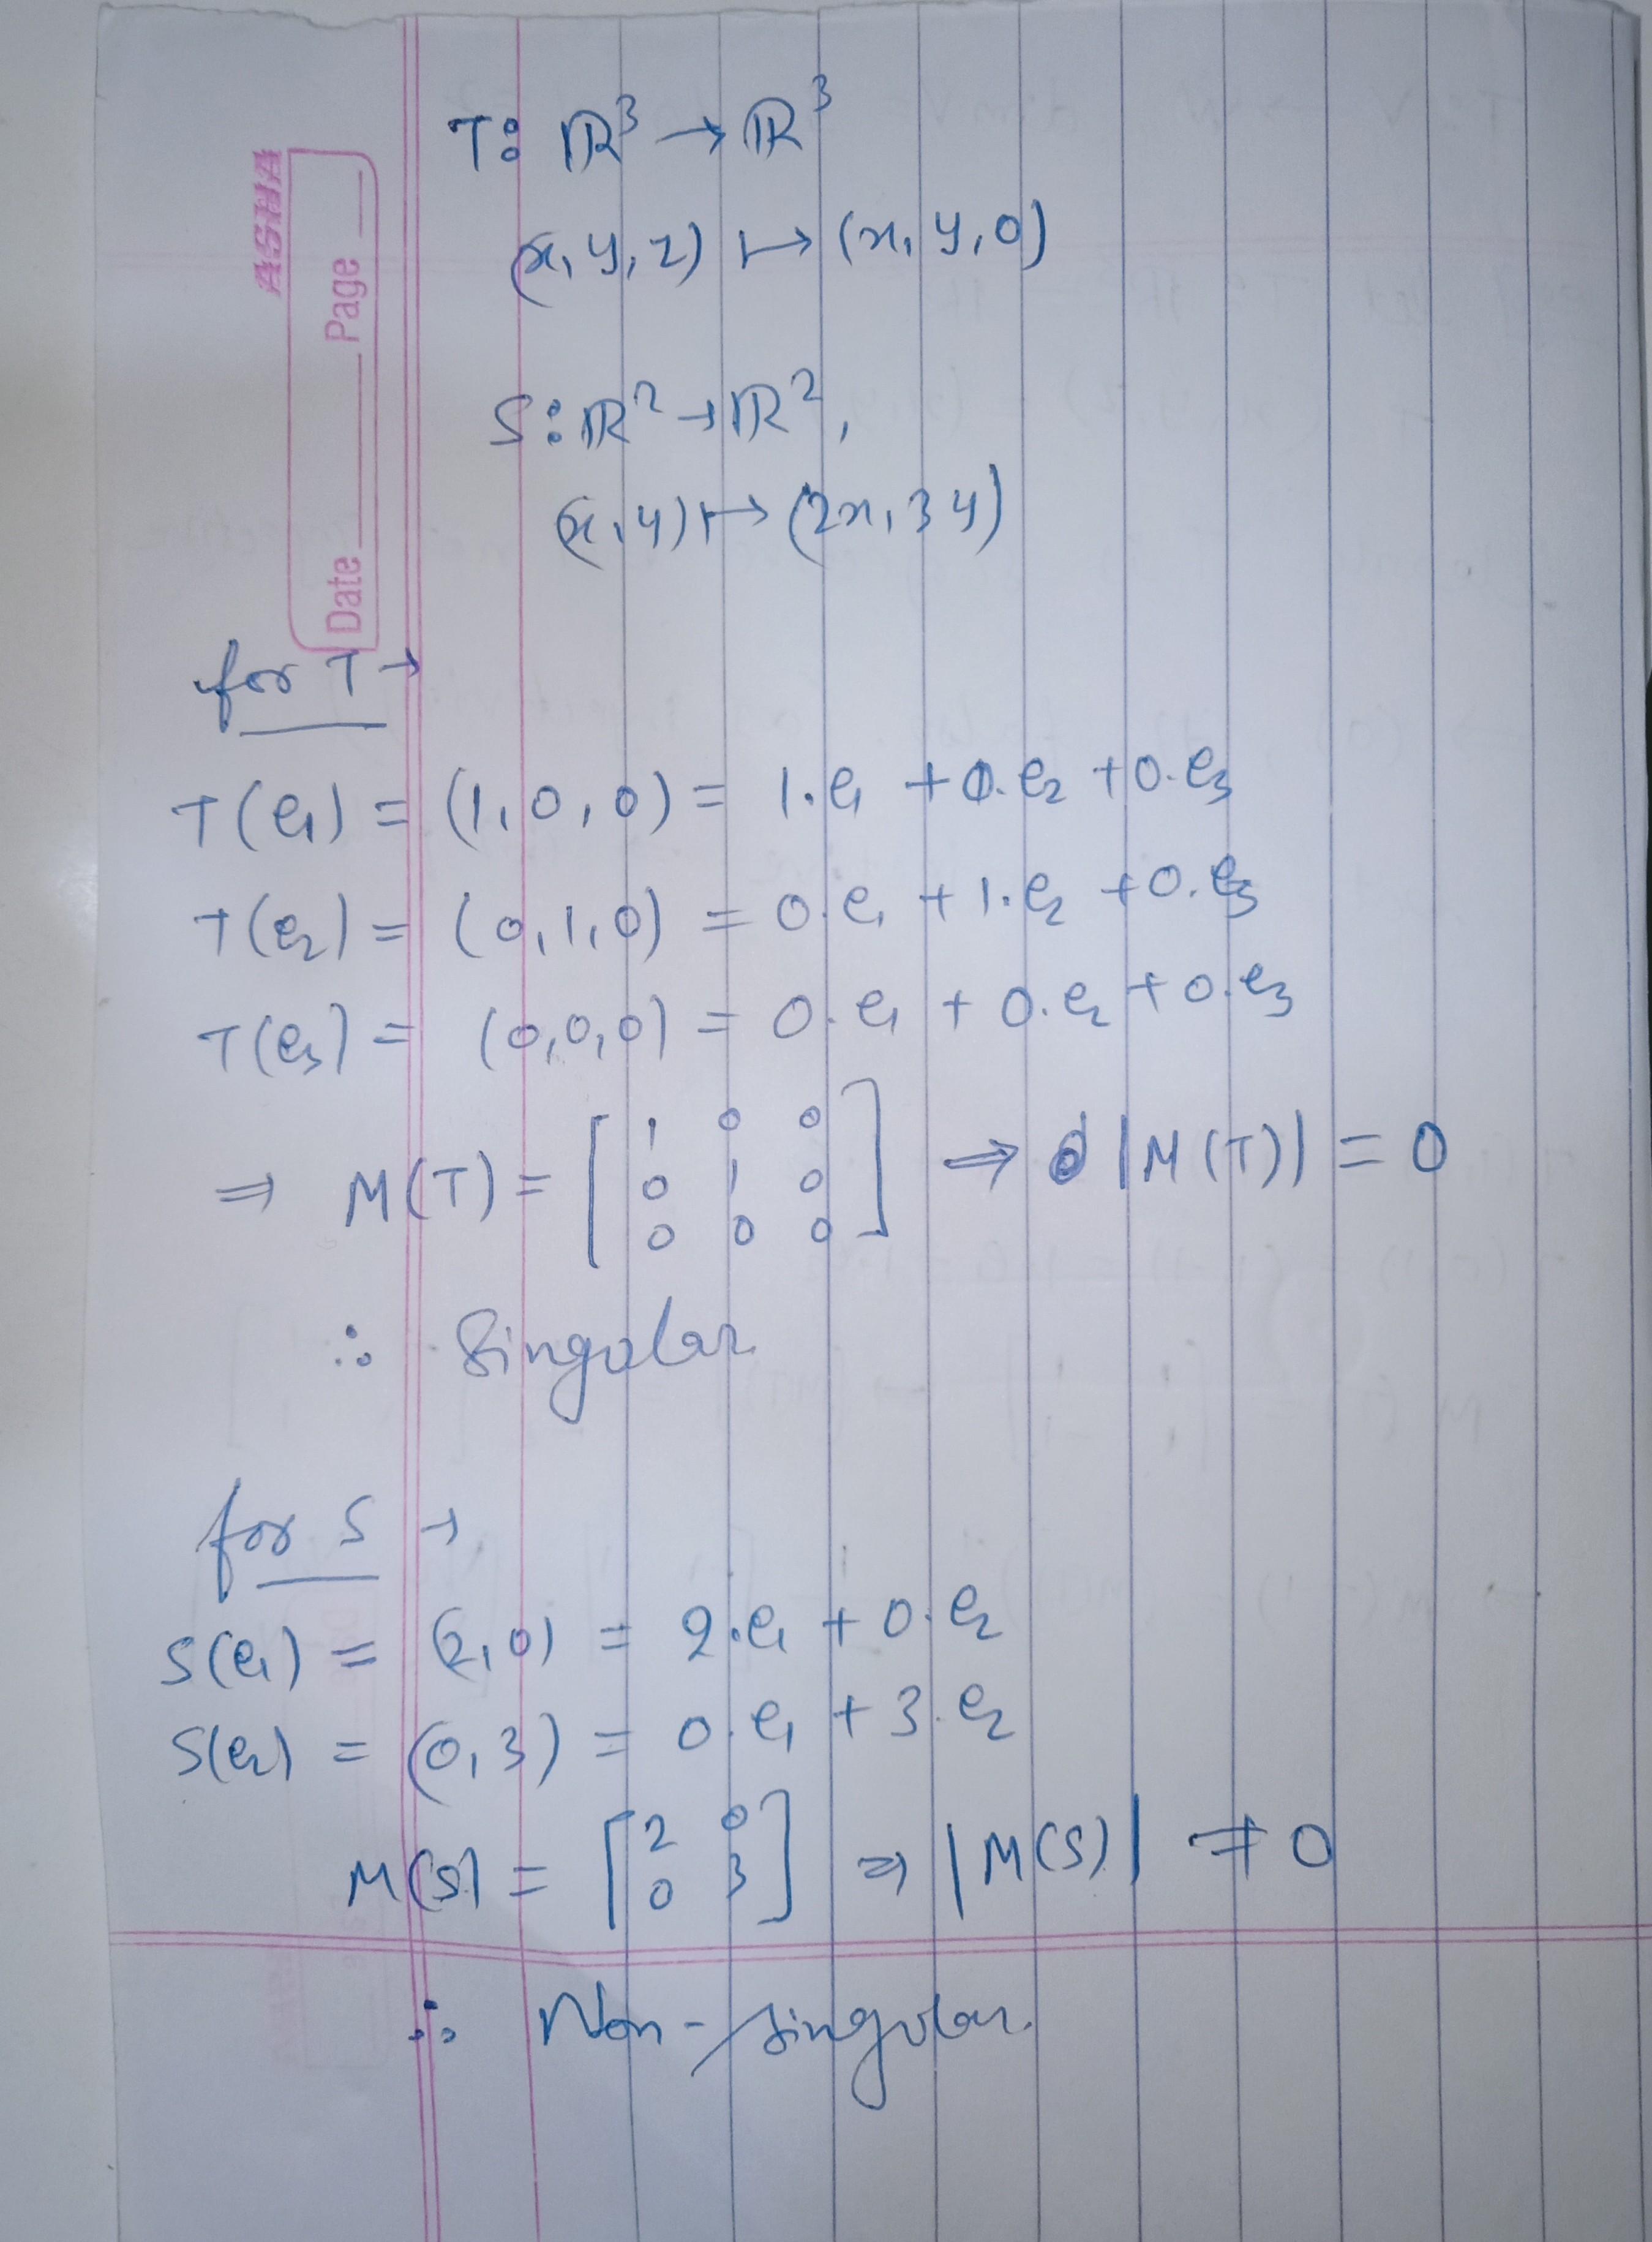 ASHA
Date Page
T: ℝ³ → ℝ³
(x, y, z) ↦ (x, y, 0)
S: ℝ² → ℝ²,
(x, y) ↦ (2x, 3y)
for T →
T(e₁) = (1, 0, 0) = 1·e₁ + 0·e₂ + 0·e₃
T(e₂) = (0, 1, 0) = 0·e₁ + 1·e₂ + 0·e₃
T(e₃) = (0, 0, 0) = 0·e₁ + 0·e₂ + 0·e₃
⇒ M(T) = [1 0 0; 0 1 0; 0 0 0] ⇒ |M(T)| = 0
∴ Singular
for S →
S(e₁) = (2, 0) = 2·e₁ + 0·e₂
S(e₂) = (0, 3) = 0·e₁ + 3·e₂
M(S) = [2 0; 0 3] ⇒ |M(S)| ≠ 0
∴ Non-singular.